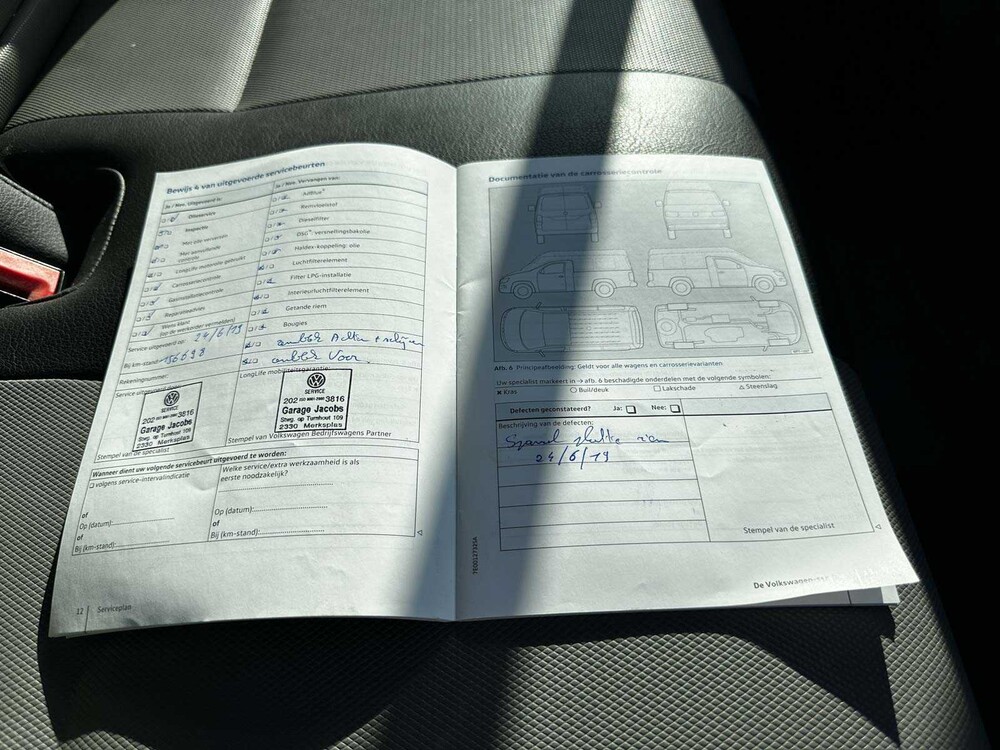 Bewijs 4 van uitgevoerde servicebeurten
Ja / Nee. Uitgevoerd is:
Olieservice
Inspectie
Met olie verversen
Met aanvullende
controle
LongLife motorolie gebruikt
Carrosseriecontrole
Reparatieadvies
Wens klant
(op de werkorder vermelden)
Service uitgevoerd op: 24/6/19
Bij km-stand: 156693
Rekeningnummer:
SERVICE
202 3816
Garage Jacobs
Stwg. op Turnhout 109
2330 Merksplas
Stempel van de specialist
Ja / Nee. Vervangen van:
AdBlue®
Remvloeistof
Dieselfilter
DSG®/versnellingsbakolie
Haldex-koppeling: olie
Luchtfilterelement
Filter LPG-installatie
Interieurluchtfilterelement
Getande riem
Bougies
Voor.
LongLife mobiliteitsgarantie:
SERVICE
202 ISO 9001-2000 3816
Garage Jacobs
Stwg. op Turnhout 109
2330 Merksplas
Stempel van Volkswagen Bedrijfswagens Partner
Wanneer dient uw volgende servicebeurt uitgevoerd te worden:
volgens service-intervalindicatie
of
Op (datum):
of
Bij (km-stand):
Welke service/extra werkzaamheid is als
eerste noodzakelijk?
Op (datum):
of
Bij (km-stand):
12 Serviceplan
Documentatie van de carrosseriecontrole
Afb. 6 Principeafbeelding: Geldt voor alle wagens en carrosserievarianten
Uw specialist markeert in → afb. 6 beschadigde onderdelen met de volgende symbolen:
Kras Buil/deuk Lakschade Steenslag
Defecten geconstateerd? Ja: Nee:
Beschrijving van de defecten:
24/6/19
Stempel van de specialist
De Volkswagen